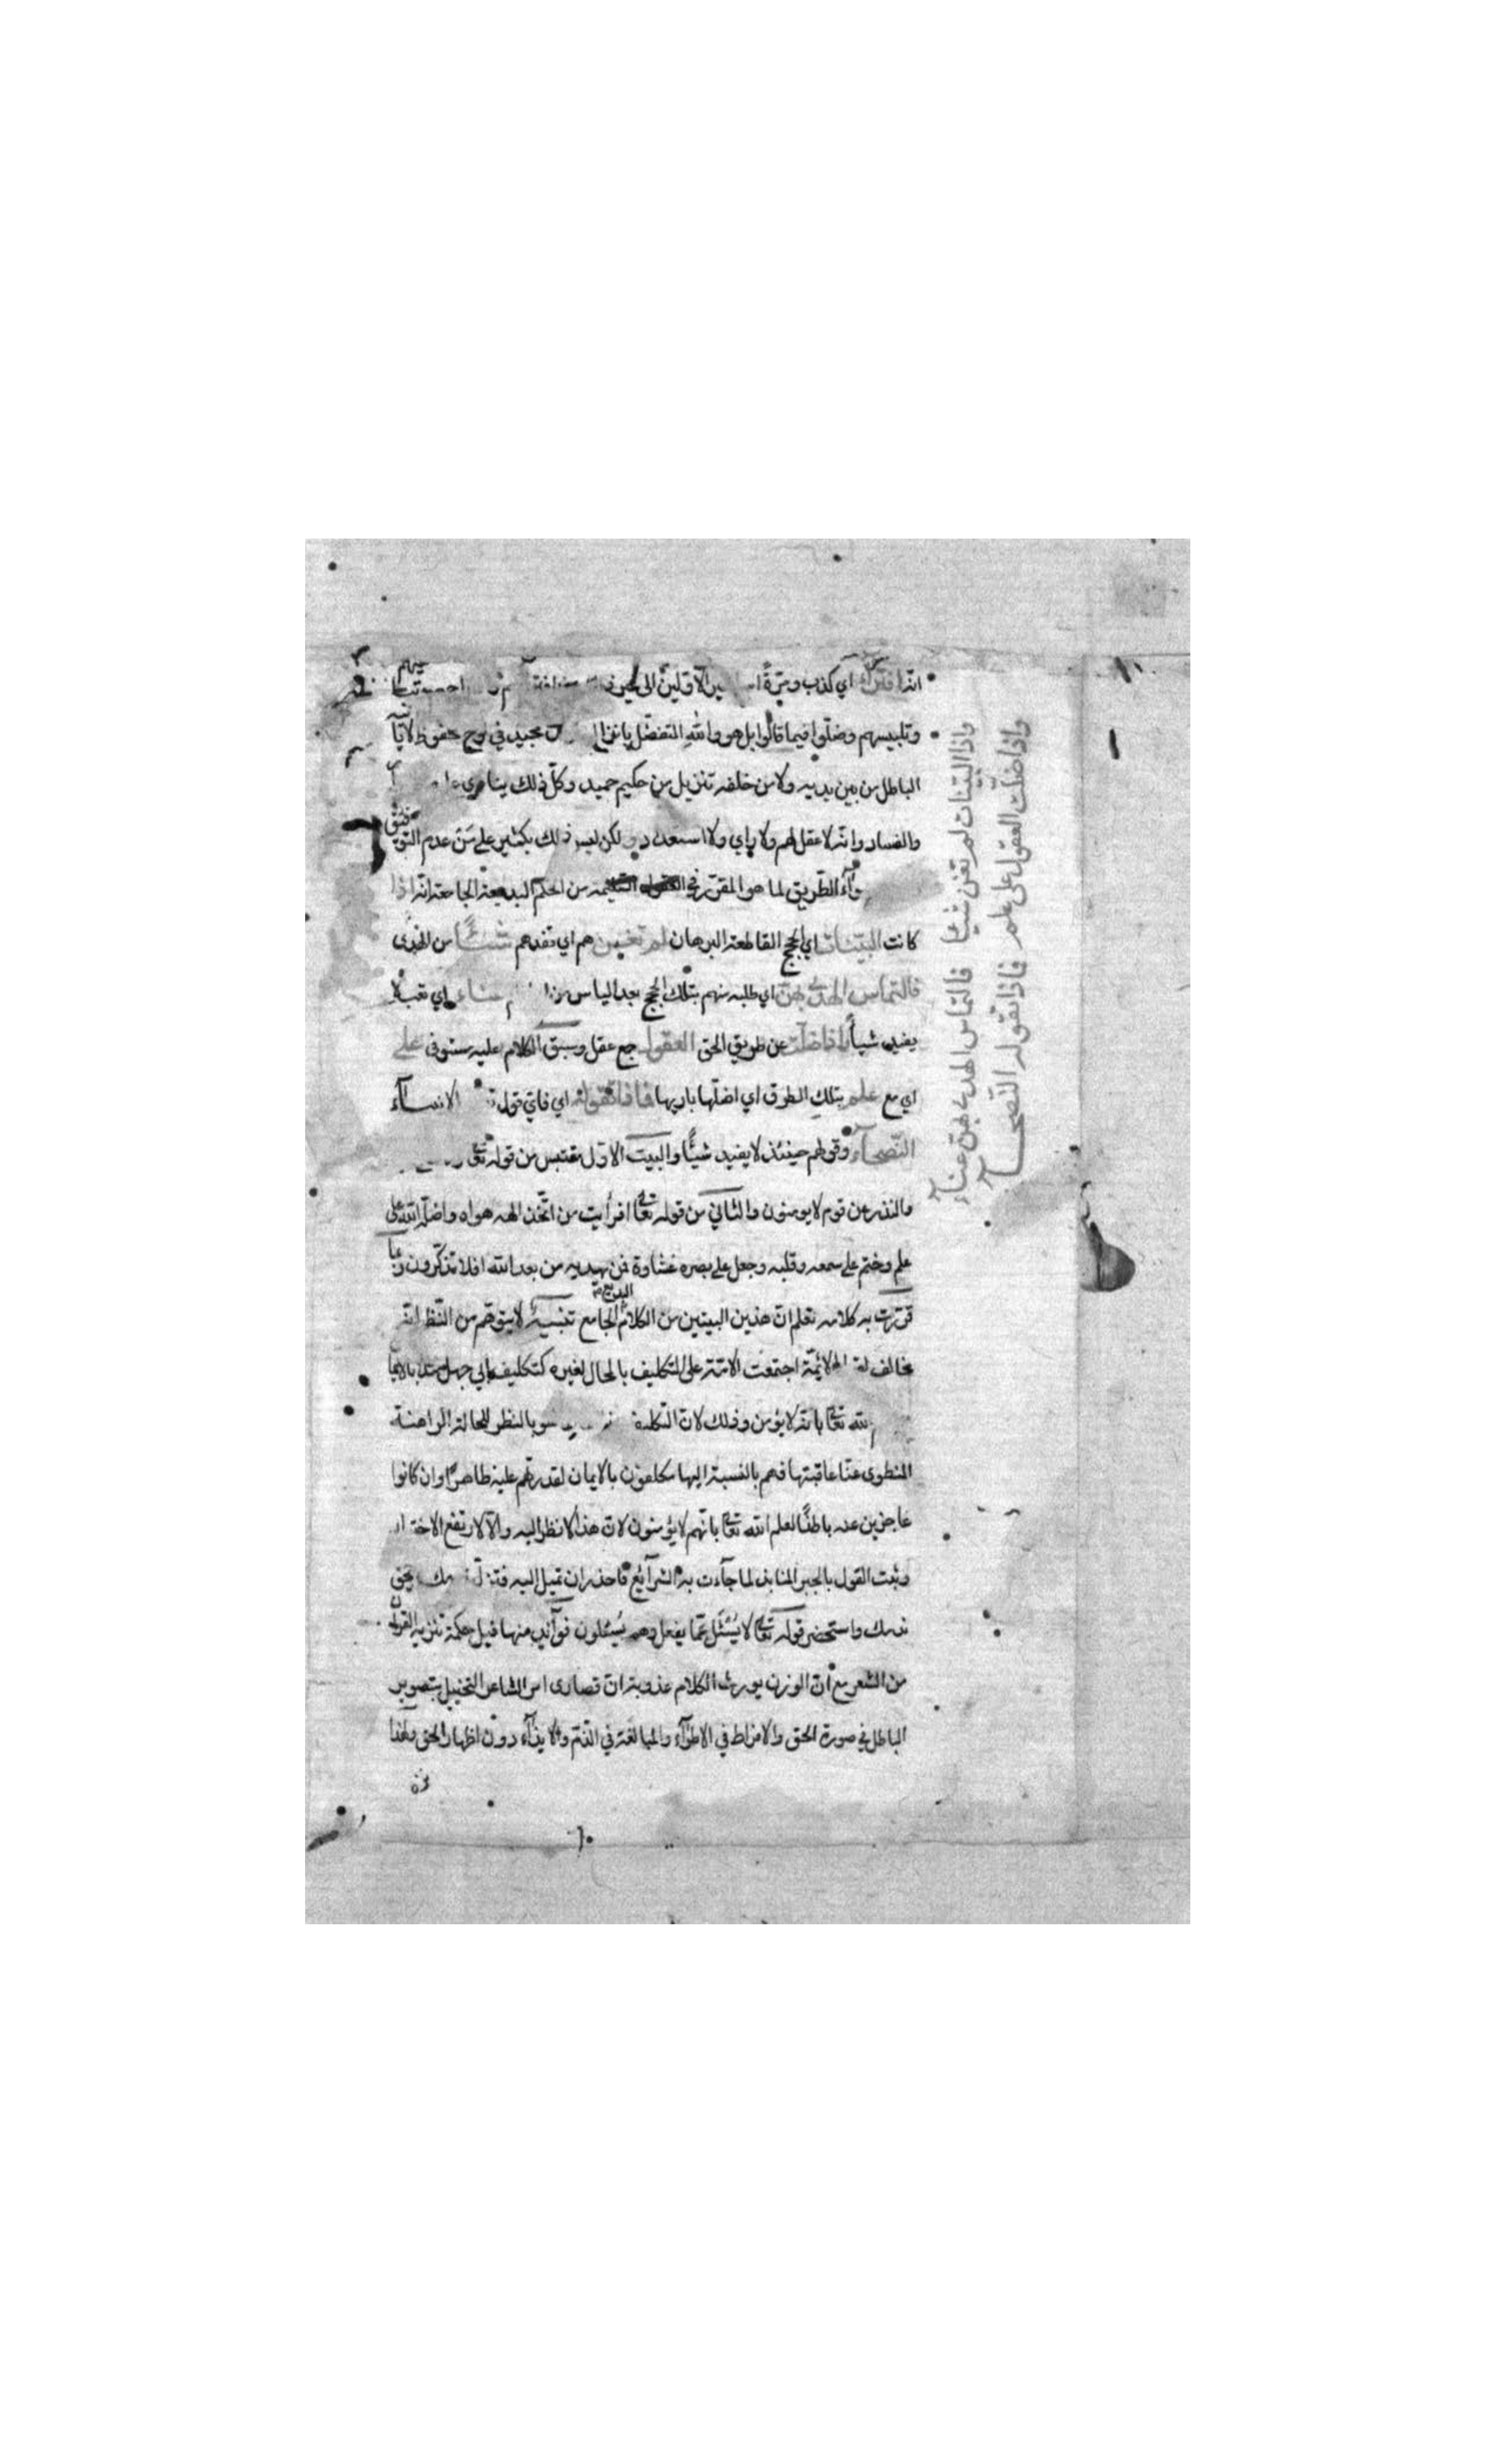 انه افتراك اي كذب ومرّةً الاوّلين الى غير
وتلبيسهم وضلّوا فيما قالوا بل هو والله المتفضّل بانزال مجيد في لوح محفوظ لا يأتيه
الباطل من بين يديه ولا من خلفه تنزيل من حكيم حميد وكلّ ذلك ينادي
والفساد وانه لا عقل لهم ولا راي ولا استعداد ولكن ليس ذلك بكثير على من عدم التوفيق
الطّريق لما هو المقرّر في من الحكم البديعة الجامعة انّه اذا
كانت البيّنات اي الحجج القاطعة البرهان لم تغنين هم اي تفدهم شيئًا من الهدى
فالتماس الهدى بهنّ اي طلبه منهم بتلك الحجج بعد الياس من عناء اي تعب لا
يفيد شيأً واذا ضلّت عن طريق الحق العقول جمع عقل وسبق الكلام عليه مستوفى على
اي مع علم بتلك الطرق اي اضلّها باريها فماذا تقوله اي فاتي قول
النّصحآء وقولهم حينئذ لا يفيد شيئًا والبيت الاول مقتبس من قوله تعالى
والنذر عن قوم لا يومنون والثاني من قوله تعالى افرأيت من اتّخذ الهه هواه واضلّه الله على
علم وختم على سمعه وقلبه وجعل على بصره غشاوة فمن يهديه من بعد الله افلا تذكّرون وبما
قرّرت به كلامه تعلم انّ هذين البيتين من الكلام البديع الجامع تنبيه لا يتوهّم من النّظم انّه
مخالف الائمّة اجتمعت الامّة على التكليف بالمحال لغيره كتكليف ابي جهل مثلا بالايمان
الله تعالى بانه لا يؤمن وذلك لانّ التكليف هو بالنظر للحالة الراهنة
المنطوى عنّا عاقبتها فهم بالنسبة اليها مكلفون بالايمان لقدرتهم عليه ظاهرًا وان كانوا
عاجزين عنه باطنًا لعلم الله تعالى بانّهم لا يؤمنون لانّ هذا لا نظر اليه والّا لارتفع الاختيار
وثبت القول بالجبر المنابذ لما جآءت به الشرآئع فاحذر ان تميل اليه فتزلّ
واستحضر قوله تعالى لا يُسْئَل عمّا يفعل وهم يُسئلون فوآئد منها قيل حكمة تنزيه القرآن
من الشعر مع انّ الوزن يورث الكلام عذوبة انّ قصارى امر الشاعر التخييل بتصوير
الباطل في صورة الحق والافراط في الاطرآء والمبالغة في الذّمّ والايذآء دون اظهار الحق ولهذا
نزه
واذا البيّنات لم تغن شيئا فالتماس الهدى بهنّ عناء
واذا ضلّت العقول على علم فماذا تقوله النّصحآء